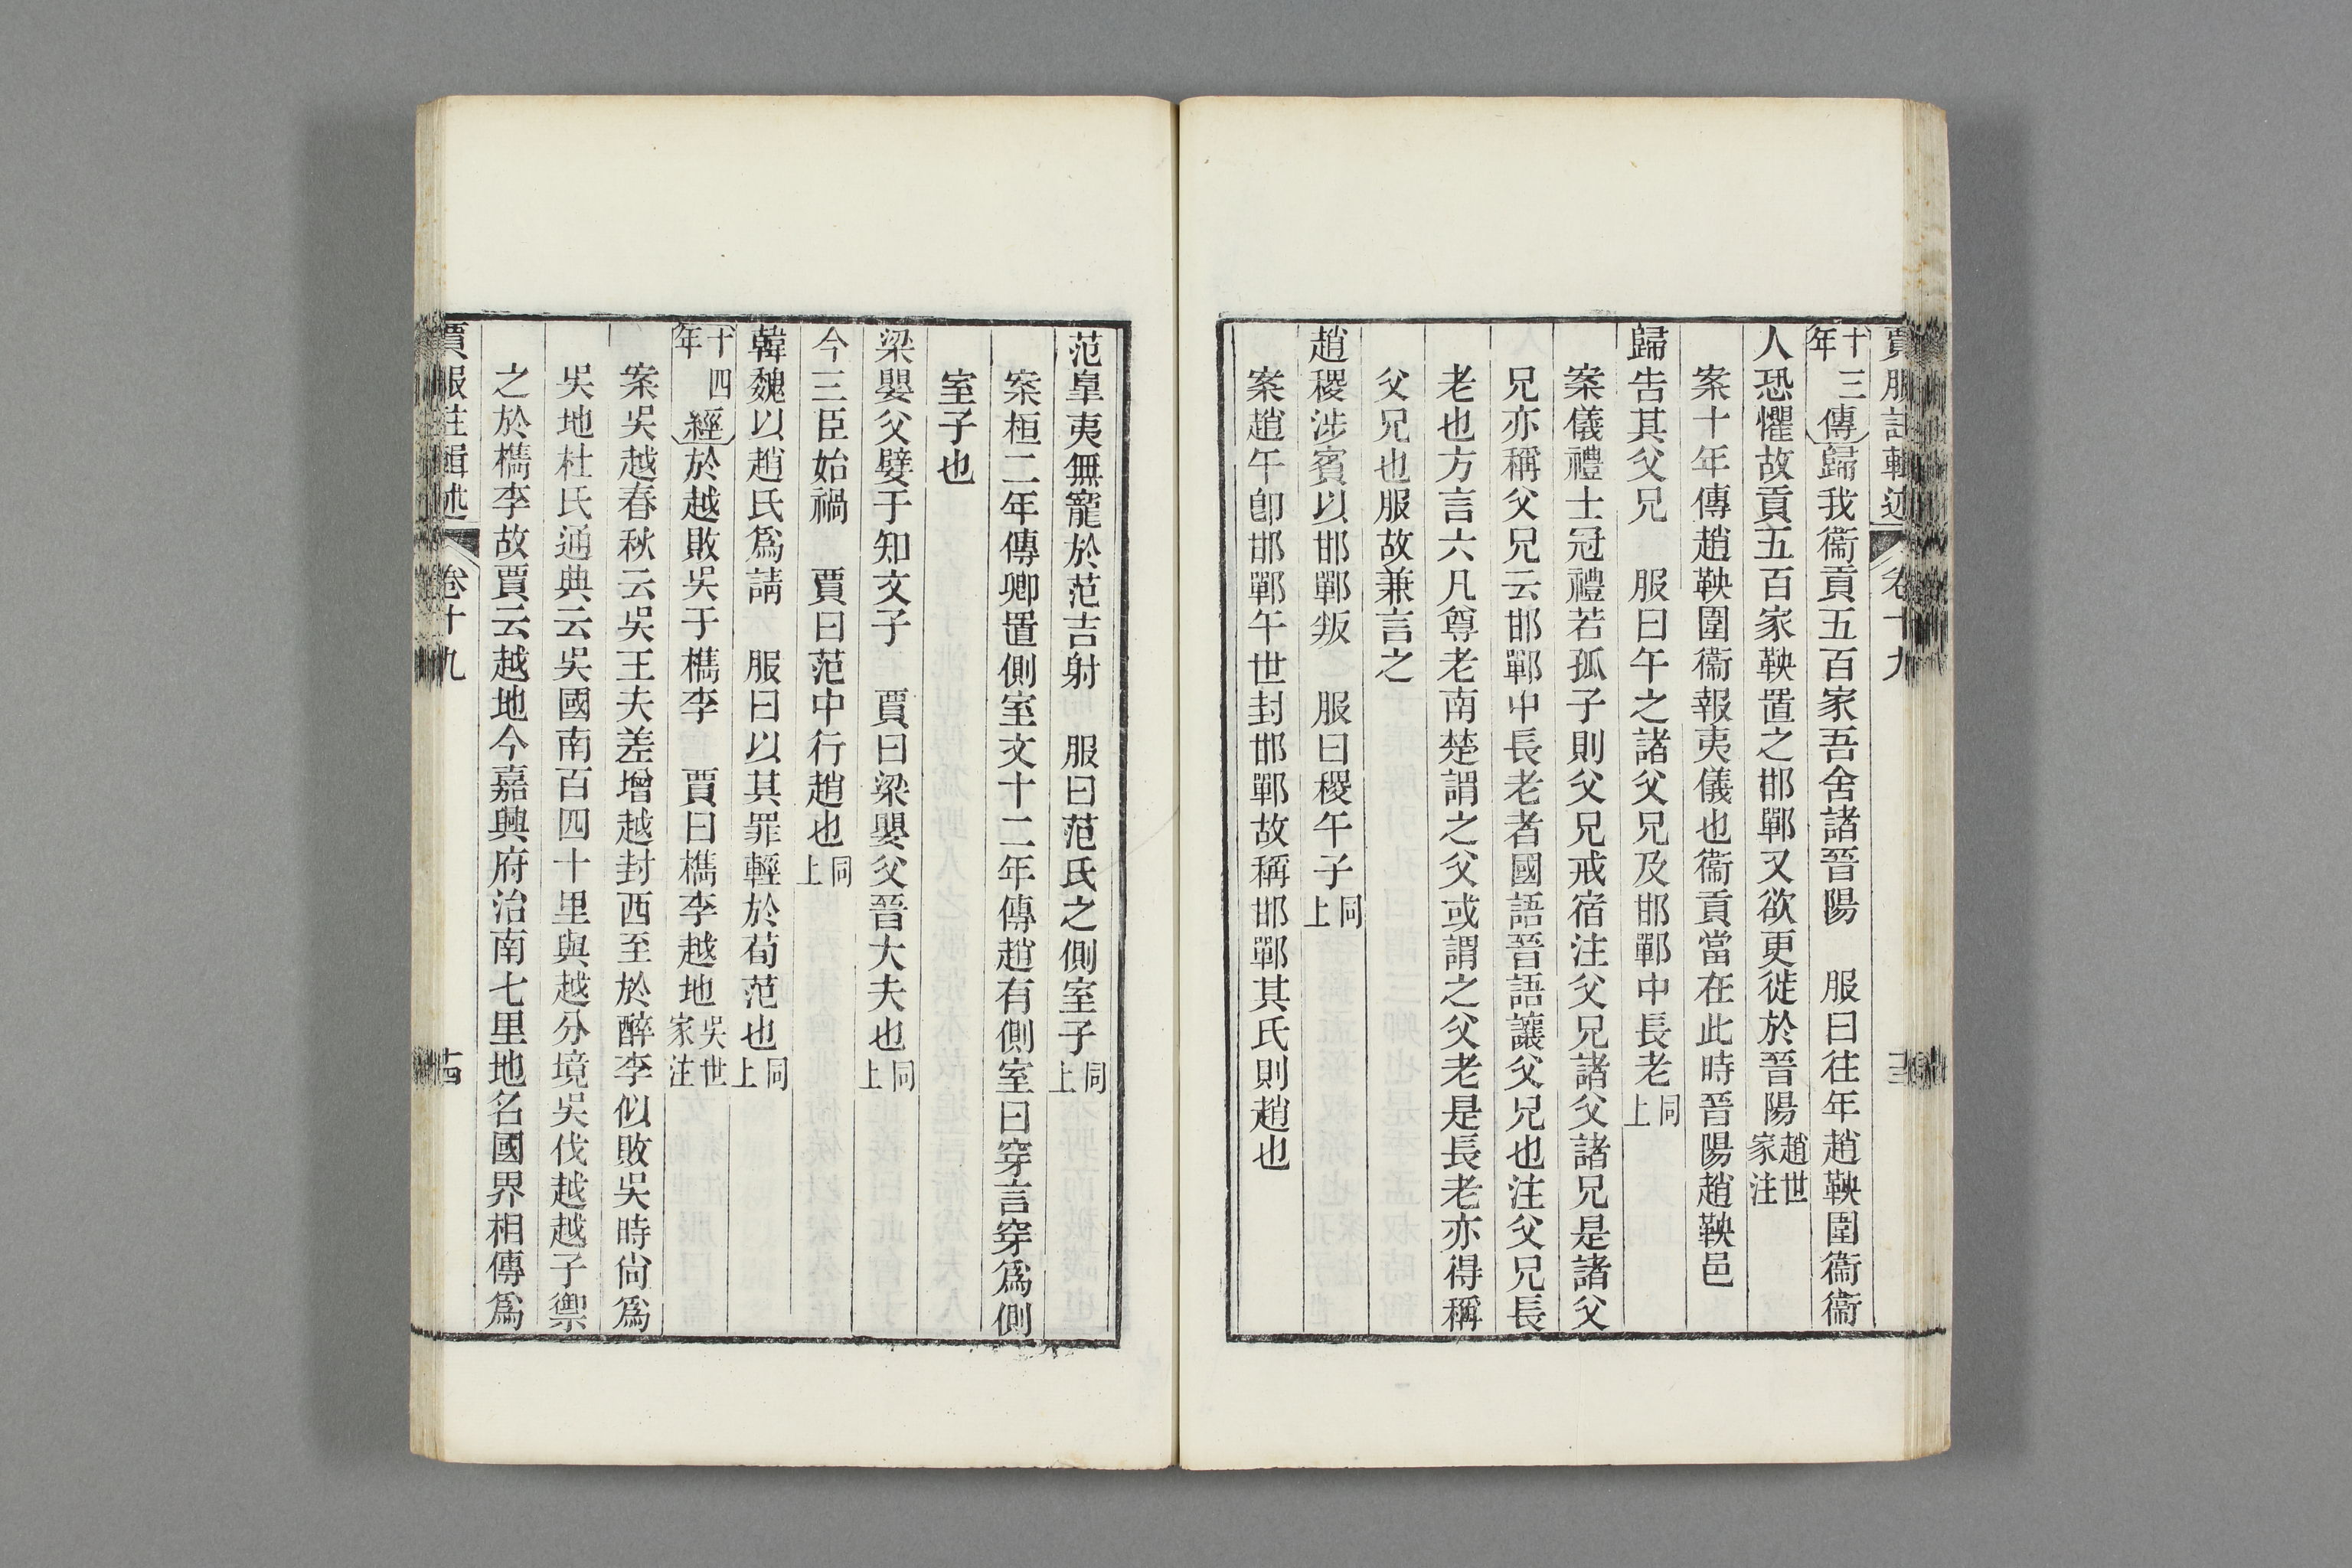 賈服註輯述 卷十九 十三
十三年傳歸我衞貢五百家吾舍諸晉陽　服曰往年趙鞅圍衞衞
人恐懼故貢五百家鞅置之邯鄲又欲更徙於晉陽趙世家注
案十年傳趙鞅圍衞報夷儀也衞貢當在此時晉陽趙鞅邑
歸告其父兄　服曰午之諸父兄及邯鄲中長老同上
案儀禮士冠禮若孤子則父兄戒宿注父兄諸父諸兄是諸父
兄亦稱父兄云邯鄲中長老者國語晉語讓父兄也注父兄長
老也方言六凡尊老南楚謂之父或謂之父老是長老亦得稱
父兄也服故兼言之
趙稷涉賓以邯鄲叛　服曰稷午子同上
案趙午卽邯鄲午世封邯鄲故稱邯鄲其氏則趙也
范皐夷無寵於范吉射　服曰范氏之側室子同上
案桓二年傳卿置側室文十二年傳趙有側室曰穿言穿爲側
室子也
梁嬰父嬖于知文子　賈曰梁嬰父晉大夫也同上
今三臣始禍　賈曰范中行趙也同上
韓魏以趙氏爲請　服曰以其罪輕於荀范也同上
十四年經於越敗吳于檇李　賈曰檇李越地吳世家注
案吳越春秋云吳王夫差增越封西至於醉李似敗吳時尙爲
吳地杜氏通典云吳國南百四十里與越分境吳伐越越子禦
之於檇李故賈云越地今嘉興府治南七里地名國界相傳爲
賈服註輯述 卷十九 十四